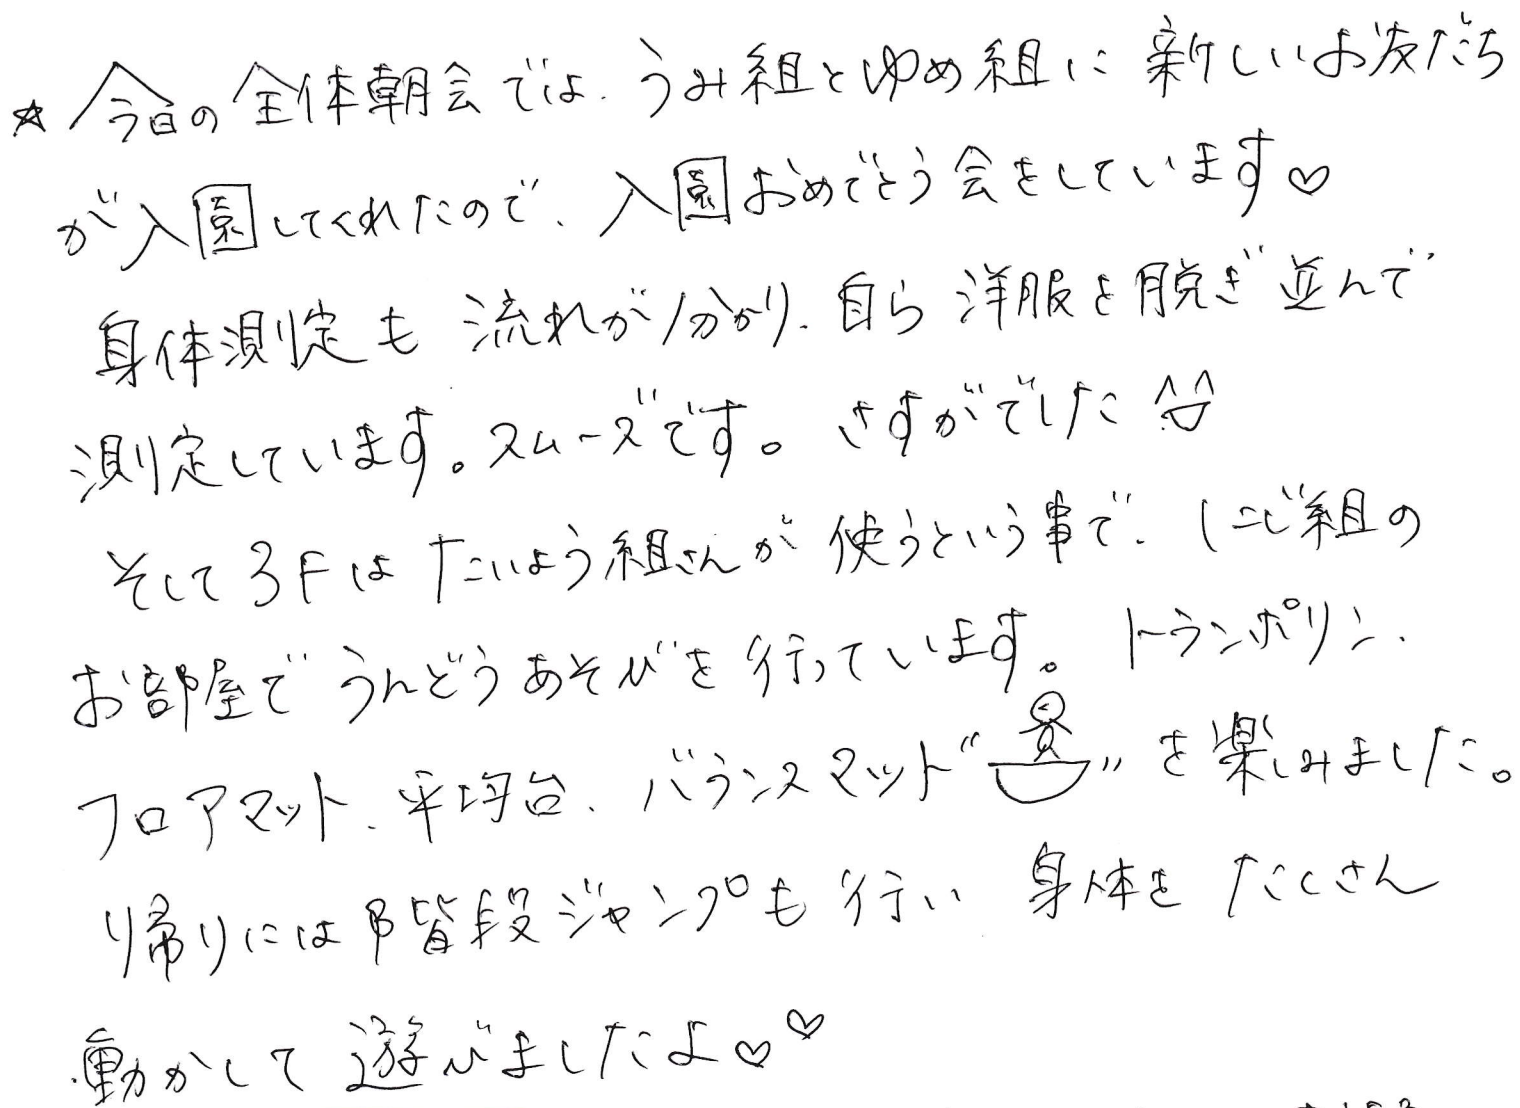 ☆今日の全体朝会では、うみ組とゆめ組に新しいお友だち
が入園してくれたので、入園おめでとう会をしています♡
身体測定も流れが分かり、自ら洋服を脱ぎ並んで
測定しています。スムーズです。さすがでした
そして3Fはたいよう組さんが使うという事で、にじ組の
お部屋でうんどうあそびを行っています。トランポリン、
フロアマット、平均台、バランスマット“ ”を楽しみました。
帰りには階段ジャンプも行い身体をたくさん
動かして遊びましたよ♡♡